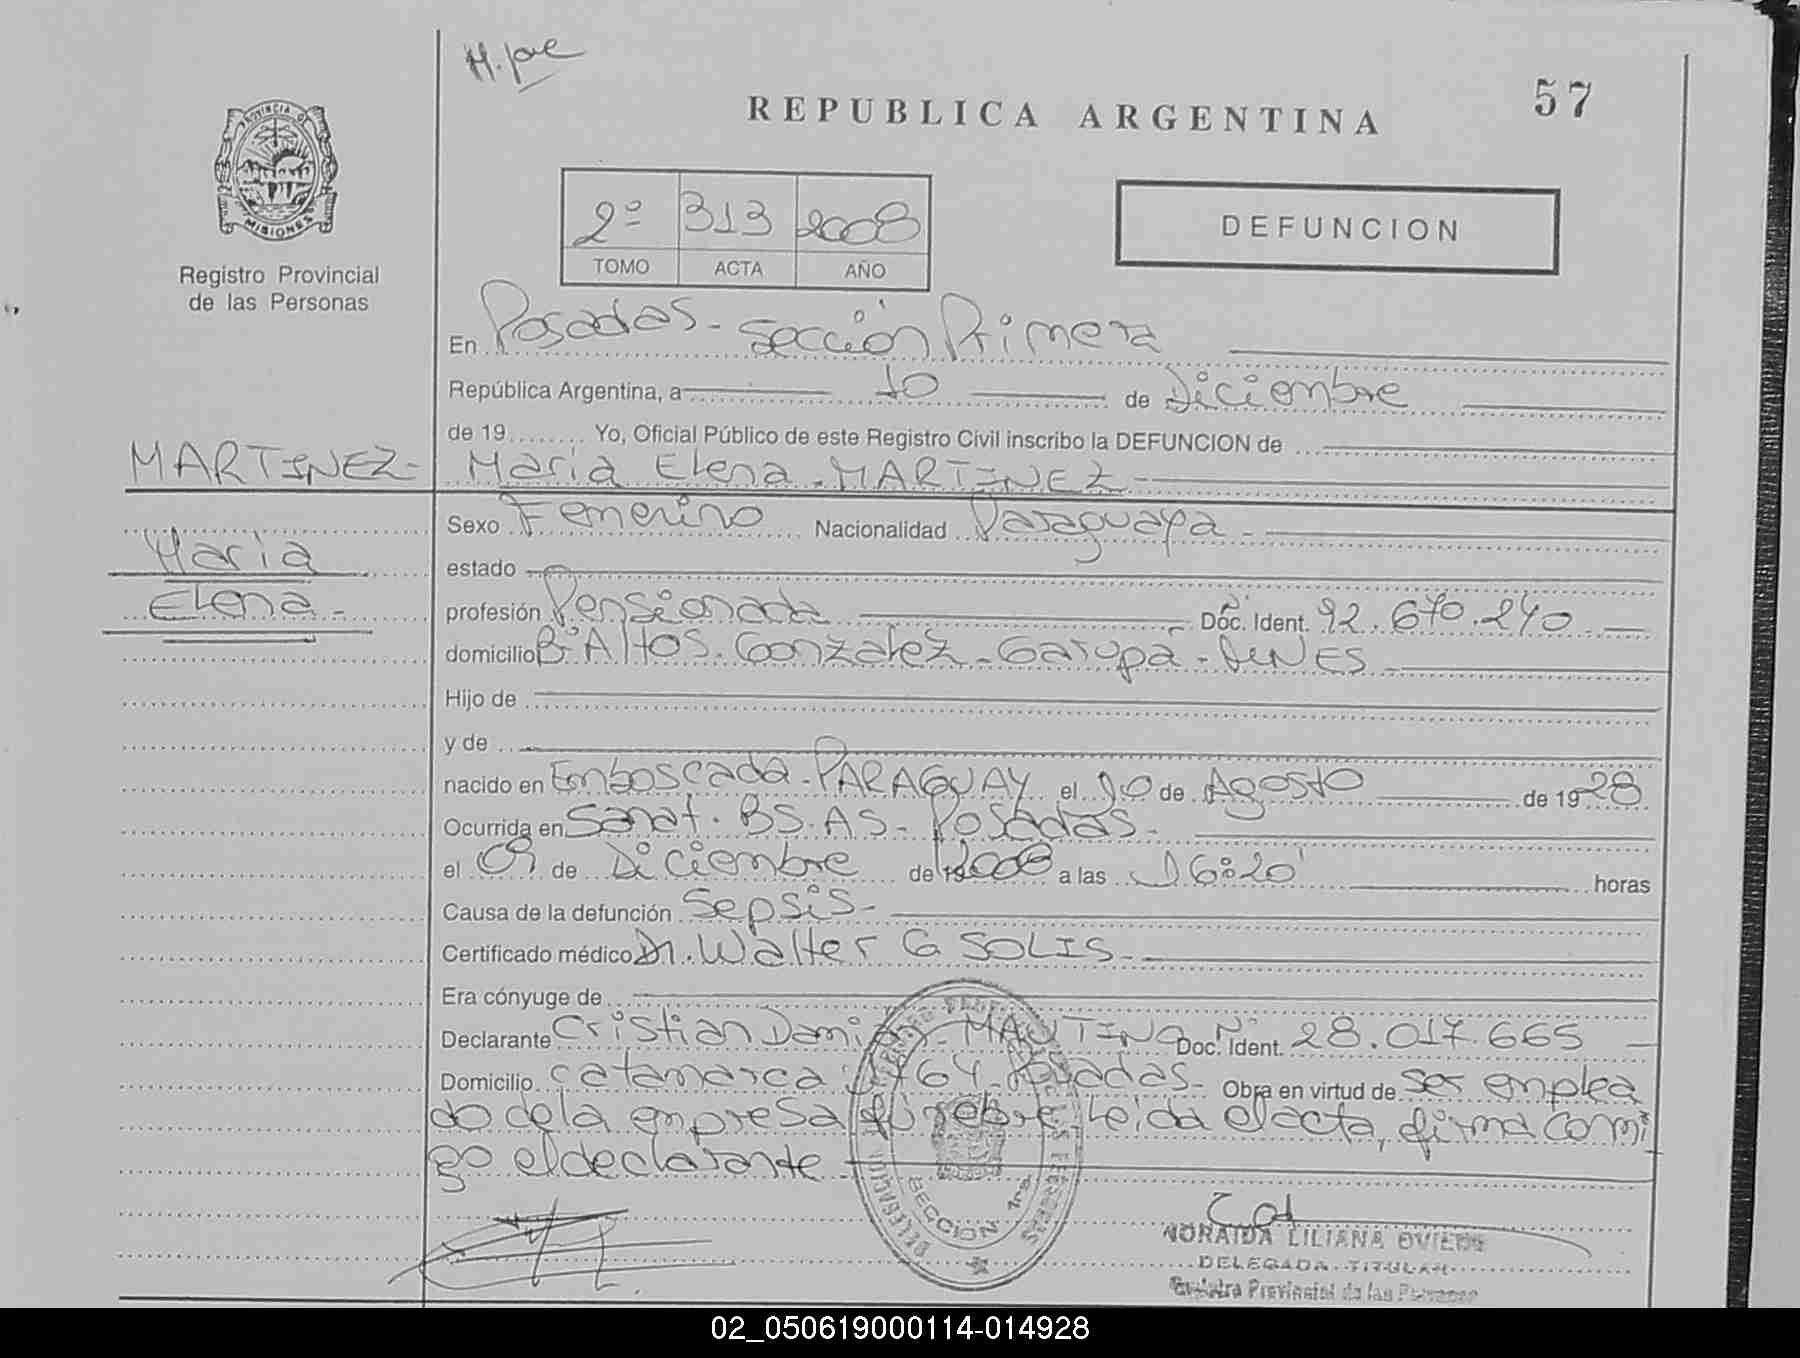 57
REPUBLICA ARGENTINA
PROVINCIA D
MISIONES
Registro Provincial
de las Personas
2º 313 2008
TOMO ACTA AÑO
DEFUNCION
En Posadas - Sección Primera
República Argentina, a 10 de Diciembre
de 19........ Yo, Oficial Público de este Registro Civil inscribo la DEFUNCION de
MARTINEZ- Maria Elena MARTINEZ
Sexo Femenino Nacionalidad Paraguaya -
Maria
estado
Elena -
profesión Pensionada Doc. Ident. Nº 92.670.240
domicilio Bº Altos Gonzalez - Garupá - MNES
Hijo de
y de
nacido en Emboscada - PARAGUAY el 10 de Agosto de 1928
Ocurrida en Sanat. BS.AS - Posadas -
el 09 de Diciembre de 2008 a las 16:20 horas
Causa de la defunción Sepsis -
Certificado médico Dr. Walter G SOLIS -
Era cónyuge de
Declarante Cristian MAUTINO Doc. Ident. Nº 28.017.665
Domicilio Catamarca Posadas - Obra en virtud de ser emplea
do de la empresa fúnebre Leida el acta, firma conmi
go el declarante
SECCION 1ra.
NORAIDA LILIANA OVIEDO
DELEGADA TITULAR
Registro Provincial de las Personas
02_050619000114-014928